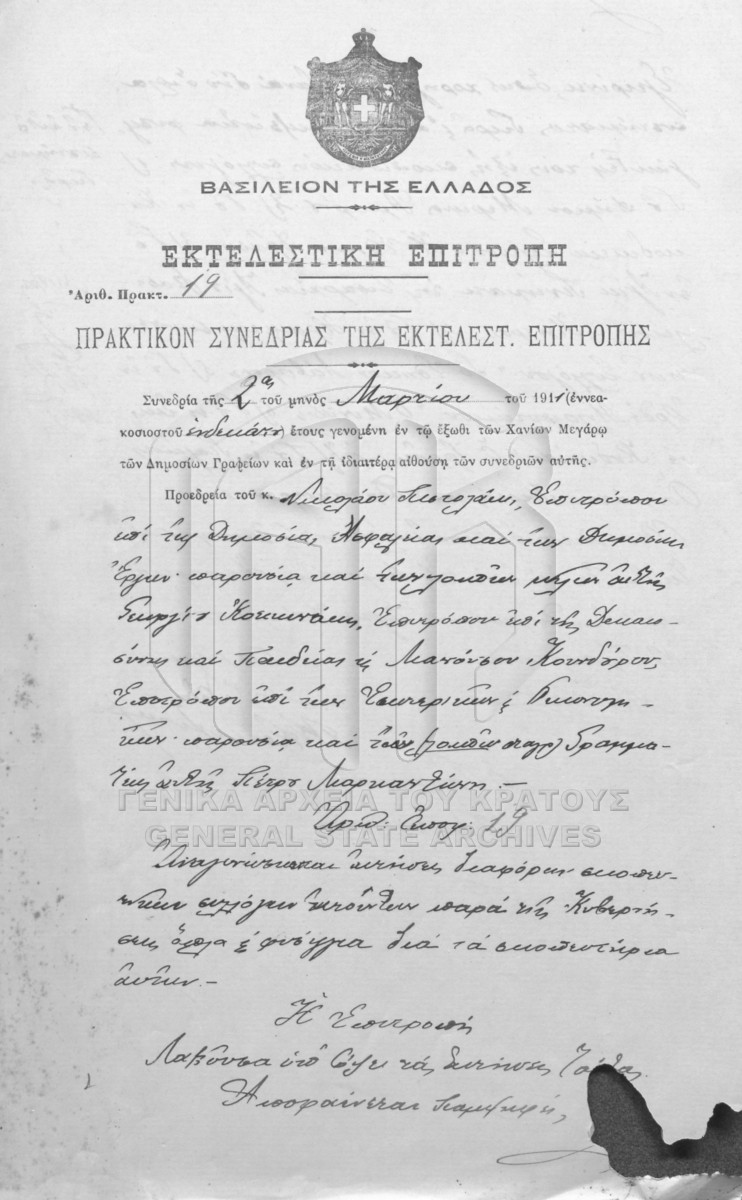 ΒΑΣΙΛΕΙΟΝ ΤΗΣ ΕΛΛΑΔΟΣ
ΕΚΤΕΛΕΣΤΙΚΗ ΕΠΙΤΡΟΠΗ
Ἀριθ. Πρακτ. 19
ΠΡΑΚΤΙΚΟΝ ΣΥΝΕΔΡΙΑΣ ΤΗΣ ΕΚΤΕΛΕΣΤ. ΕΠΙΤΡΟΠΗΣ
Συνεδρία τῆς 2ας τοῦ μηνὸς Μαρτίου τοῦ 1911 (ἐννεα-
κοσιοστοῦ ἑνδεκάτου) ἔτους γενομένη ἐν τῷ ἔξωθι τῶν Χανίων Μεγάρῳ
τῶν Δημοσίων Γραφείων καὶ ἐν τῇ ἰδιαιτέρᾳ αἰθούσῃ τῶν συνεδριῶν αὐτῆς.
Προεδρεία τοῦ κ. Νικολάου Πιστολάκη, Ἐπιτρόπου
ἐπὶ τῆς Δημοσίας Ἀσφαλείας καὶ τῶν Δημοσίων
Ἔργων παρουσίᾳ καὶ τῶν λοιπῶν μελῶν αὐτῆς
Γεωργίου Κοκκινάκη, Ἐπιτρόπου ἐπὶ τῆς Δικαιο-
σύνης καὶ Παιδείας καὶ Μανούσου Κουνδούρου,
Ἐπιτρόπου ἐπὶ τῶν Ἐσωτερικῶν καὶ Οἰκονομι-
κῶν παρουσίᾳ καὶ τοῦ Γραμμα-
τέως αὐτῆς Πέτρου Μαρκαντώνη.—
Ἀριθ. Ἀποφ. 19
ΓΕΝΙΚΑ ΑΡΧΕΙΑ ΤΟΥ ΚΡΑΤΟΥΣ
GENERAL STATE ARCHIVES
Ἀναγινώσκονται αἰτήσεις διαφόρων σκοπευ-
τικῶν συλλόγων αἰτούντων παρὰ τῆς Κυβερνή-
σεως ὅπλα καὶ φυσίγγια διὰ τὰ σκοπευτήρια
αὐτῶν.—
Ἡ Ἐπιτροπὴ
Λαβοῦσα ὑπ' ὄψει τὰς αἰτήσεις ταύτας
Ἀποφαίνεται παμψηφεί,